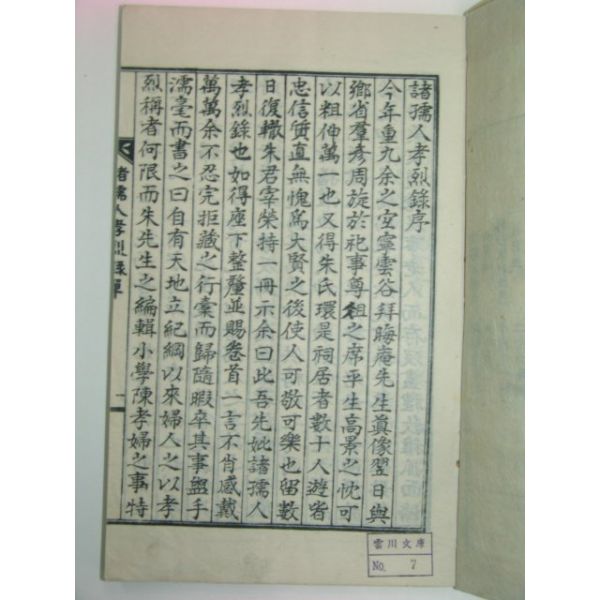 諸孺人孝烈錄序
今年重九余之空寧雲谷拜晦庵先生眞像翌日與
鄉省羣彥周旋於祀事尊祖之席平生高景之忱可
以粗伸萬一也又得朱氏環是祠居者數十人遊皆
忠信質直無愧爲大賢之後使人可敬可樂也留數
日復轍朱君宰榮持一冊示余曰此吾先妣諸孺人
孝烈錄也如得座下整釐並賜卷首一言不肖感戴
萬萬余不忍完拒藏之行橐而歸隨暇卒其事盥手
濡毫而書之曰自有天地立紀綱以來婦人之以孝
烈稱者何限而朱先生之編輯小學陳孝婦之事特
諸孺人孝烈錄 一
雲川文庫
No. 7